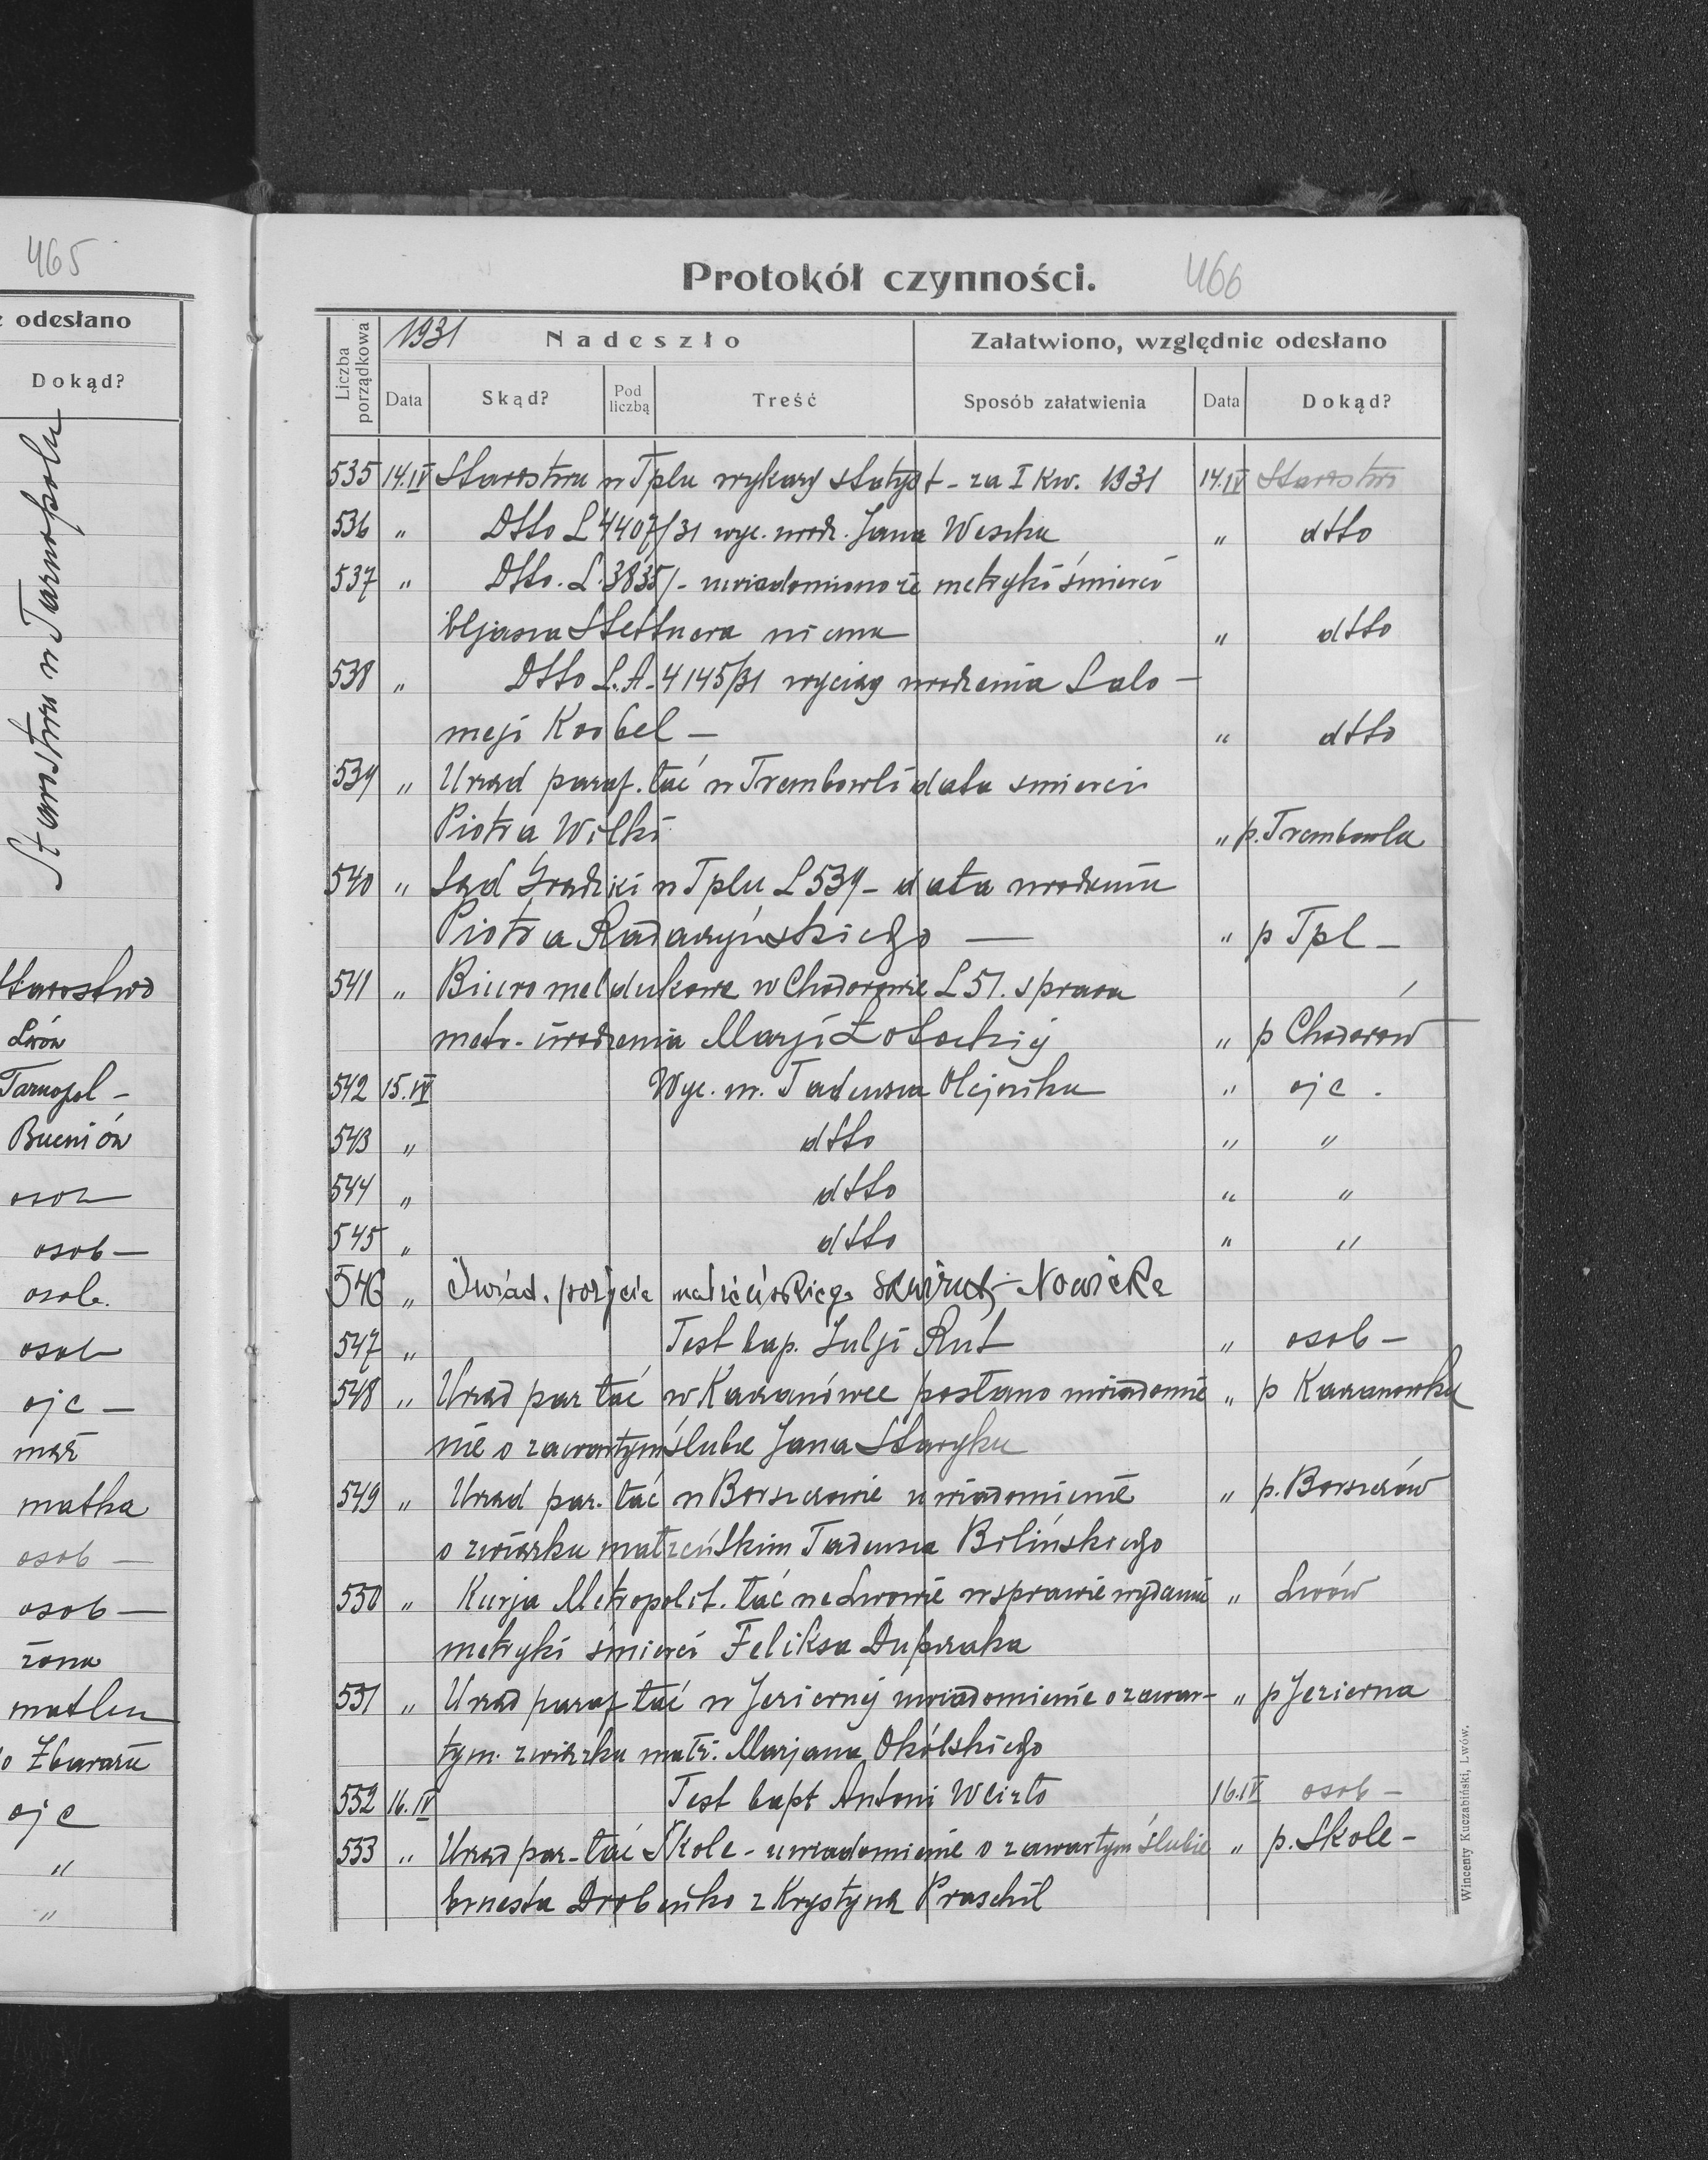 465
e odesłano
Dokąd?
Starostwu w Tarnopolu
Starostwo
Lwów
Tarnopol -
Bucniów
osob
osob —
osob.
osob
ojc —
mąż
matka
osob —
osob —
żona
matka
do Zbaraża
ojc
"
"
Protokół czynności. 466
Liczba porządkowa
1931 Nadeszło
Załatwiono, względnie odesłano
Data Skąd? Pod liczbą Treść Sposób załatwienia Data Dokąd?
535 14.IV Starostwu w Tplu wykazy statyst - za I Kw. 1931 14.IV Starostwo
536 " Dtto L 4407/31 wyc. urodz. Jana Weselu " dtto
537 " Dtto. L. 3835/- uwiadomiono że metryki śmierci
Eljasza Stettnera niema " dtto
538 " Dtto L.A. 4145/31 wyciąg urodzenia Salo -
meji Koobel — " dtto
539 " Urząd paraf. łać w Trembowli data śmierci
Piotra Wilki " p. Trembowla
540 " Sąd Grodzki w Tplu L 539 - data urodzenia
Piotra Radaczyńskiego — " p Tpl -
541 " Biuro meldukowe w Chodorowie L 51. sprawa
metr. urodzenia Marji Łotockiej " p Chodorów
542 15.IV Wyc. m. Tadeusza Olejnika " ojc .
543 " dtto " "
544 " dtto " "
545 " dtto " "
546 " Świad. pożycia małżeńskiego Nowicka
547 " Test bap. Julji Rut " osob -
548 " Urząd par łać w Kaczanówce posłano uwiadomie " p Kaczanówka
nie o zawartym ślubie Jana Staryka
549 " Urząd par. łać w Borszczowie uwiadomienie " p. Borszczów
o związku małżeńskim Tadeusza Bilińskiego
550 " Kurja Metropolit. łać we Lwowie w sprawie wydania " Lwów
metryki śmierci Feliksa Dupczaka
551 " Urząd paraf łać w Jeziernej uwiadomienie o zawar- " p Jezierna
tym. związku małż. Marjana Okólskiego
552 16.IV Test bapt Antoni Weizło 16.IV osob -
553 " Urząd par - łać Skole - uwiadomienie o zawartym ślubie " p. Skole -
Ernesta Drobeńko z Krystyną Praschil
Wincenty Kuczabiński, Lwów.